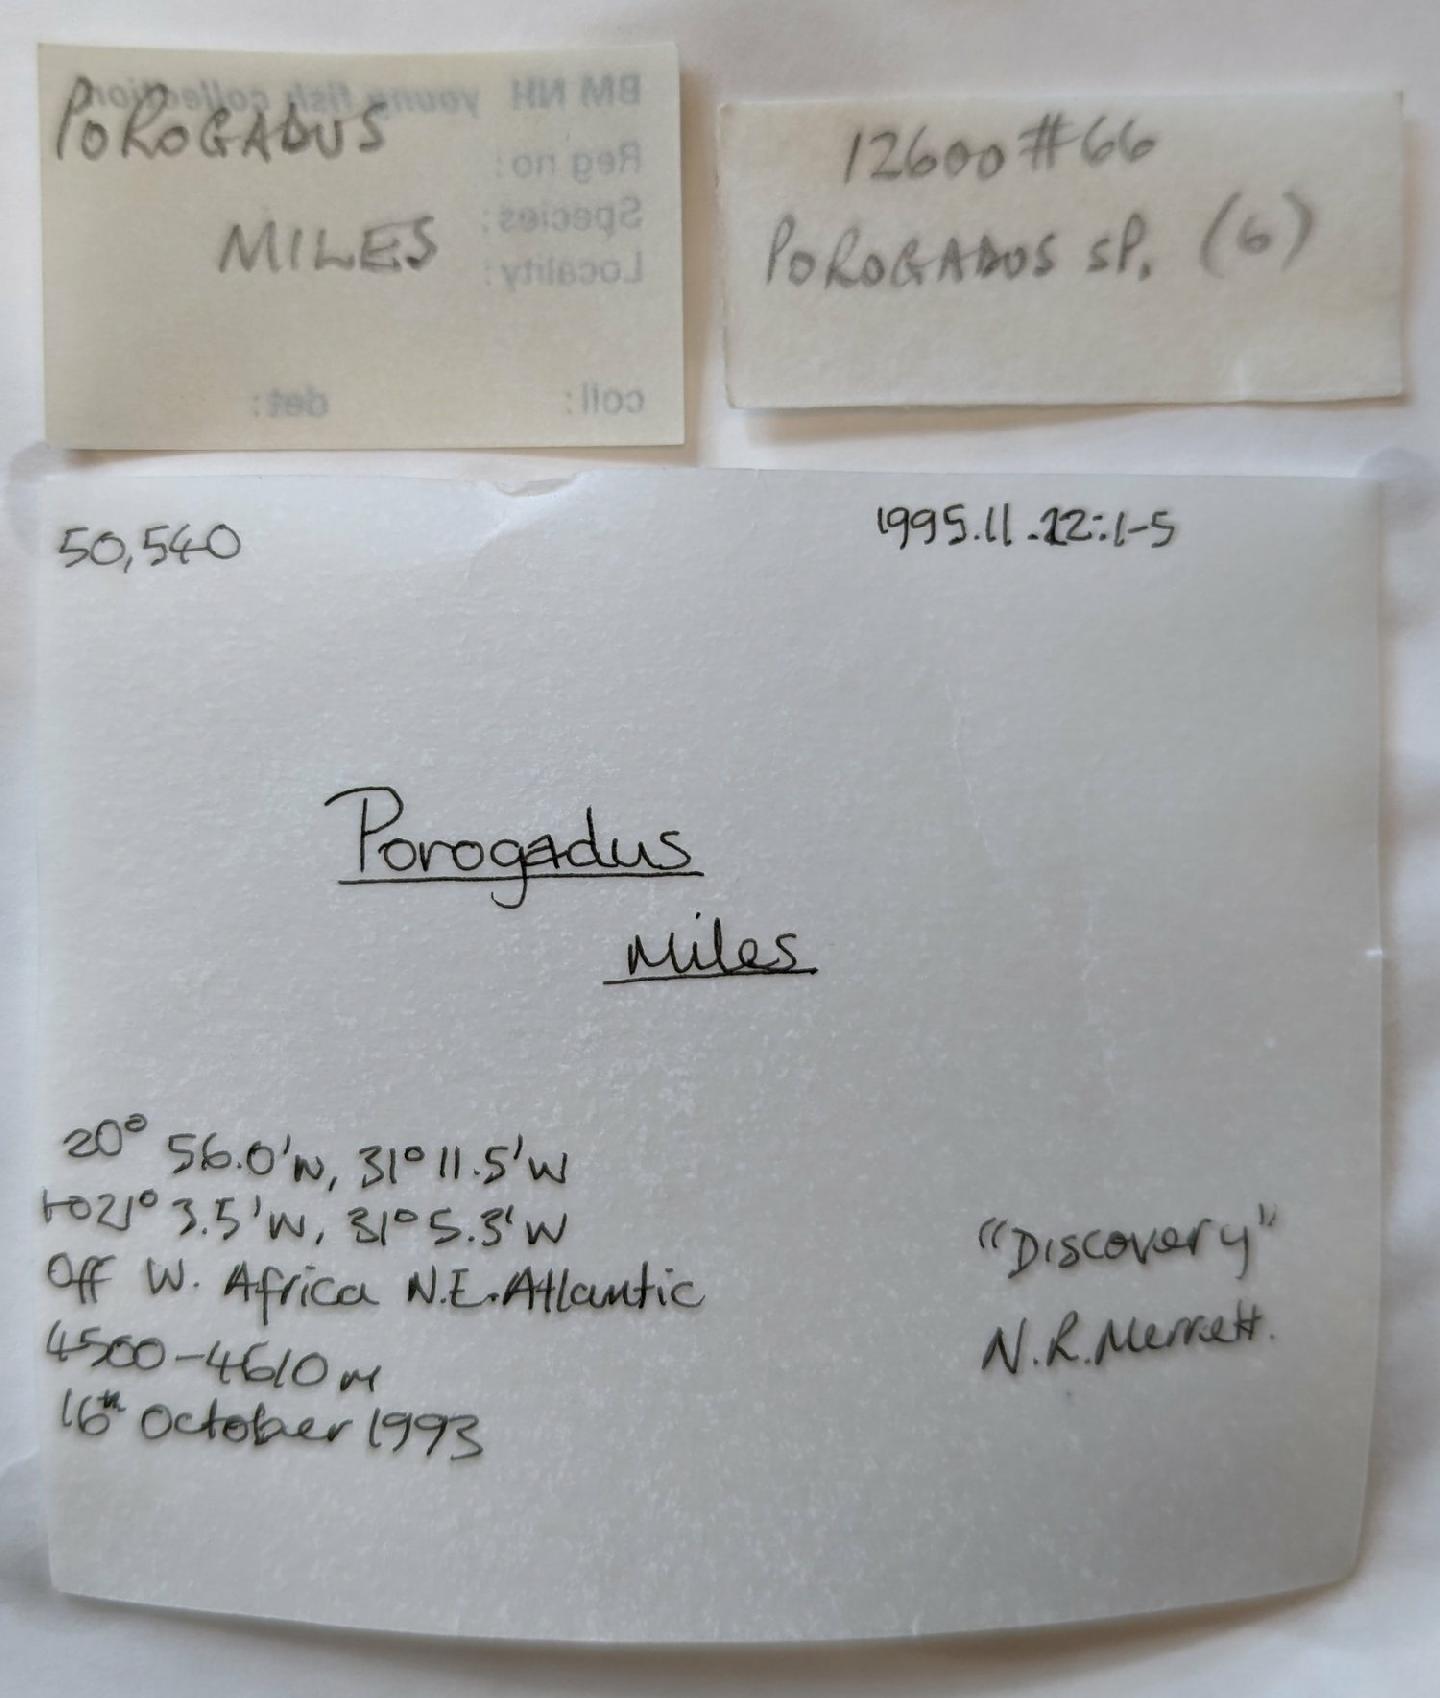 POROGADUS
MILES
BM NH young fish collection
Reg no:
Species:
Locality:
coll: det:
12600#66
POROGADUS SP. (6)
50,540 1995.11.22:1-5
Porogadus
miles
20° 56.0'N, 31° 11.5'W
to 21° 3.5'W, 31° 5.3'W
Off W. Africa N.E. Atlantic
4500-4610m
16th October 1993
"Discovery"
N.R. Merrett.